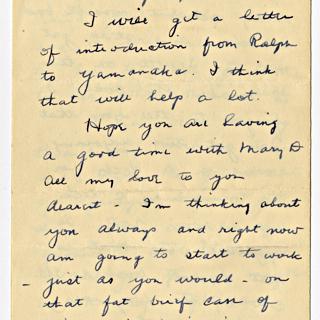 I will get a letter
of introduction from Ralph
to Yamanaka. I think
that will help a lot.
Hope you are having
a good time with Mary D
All my love to you
dearest - I'm thinking about
you always and right now
am going to start to work
- just as you would - on
that fat brief case of